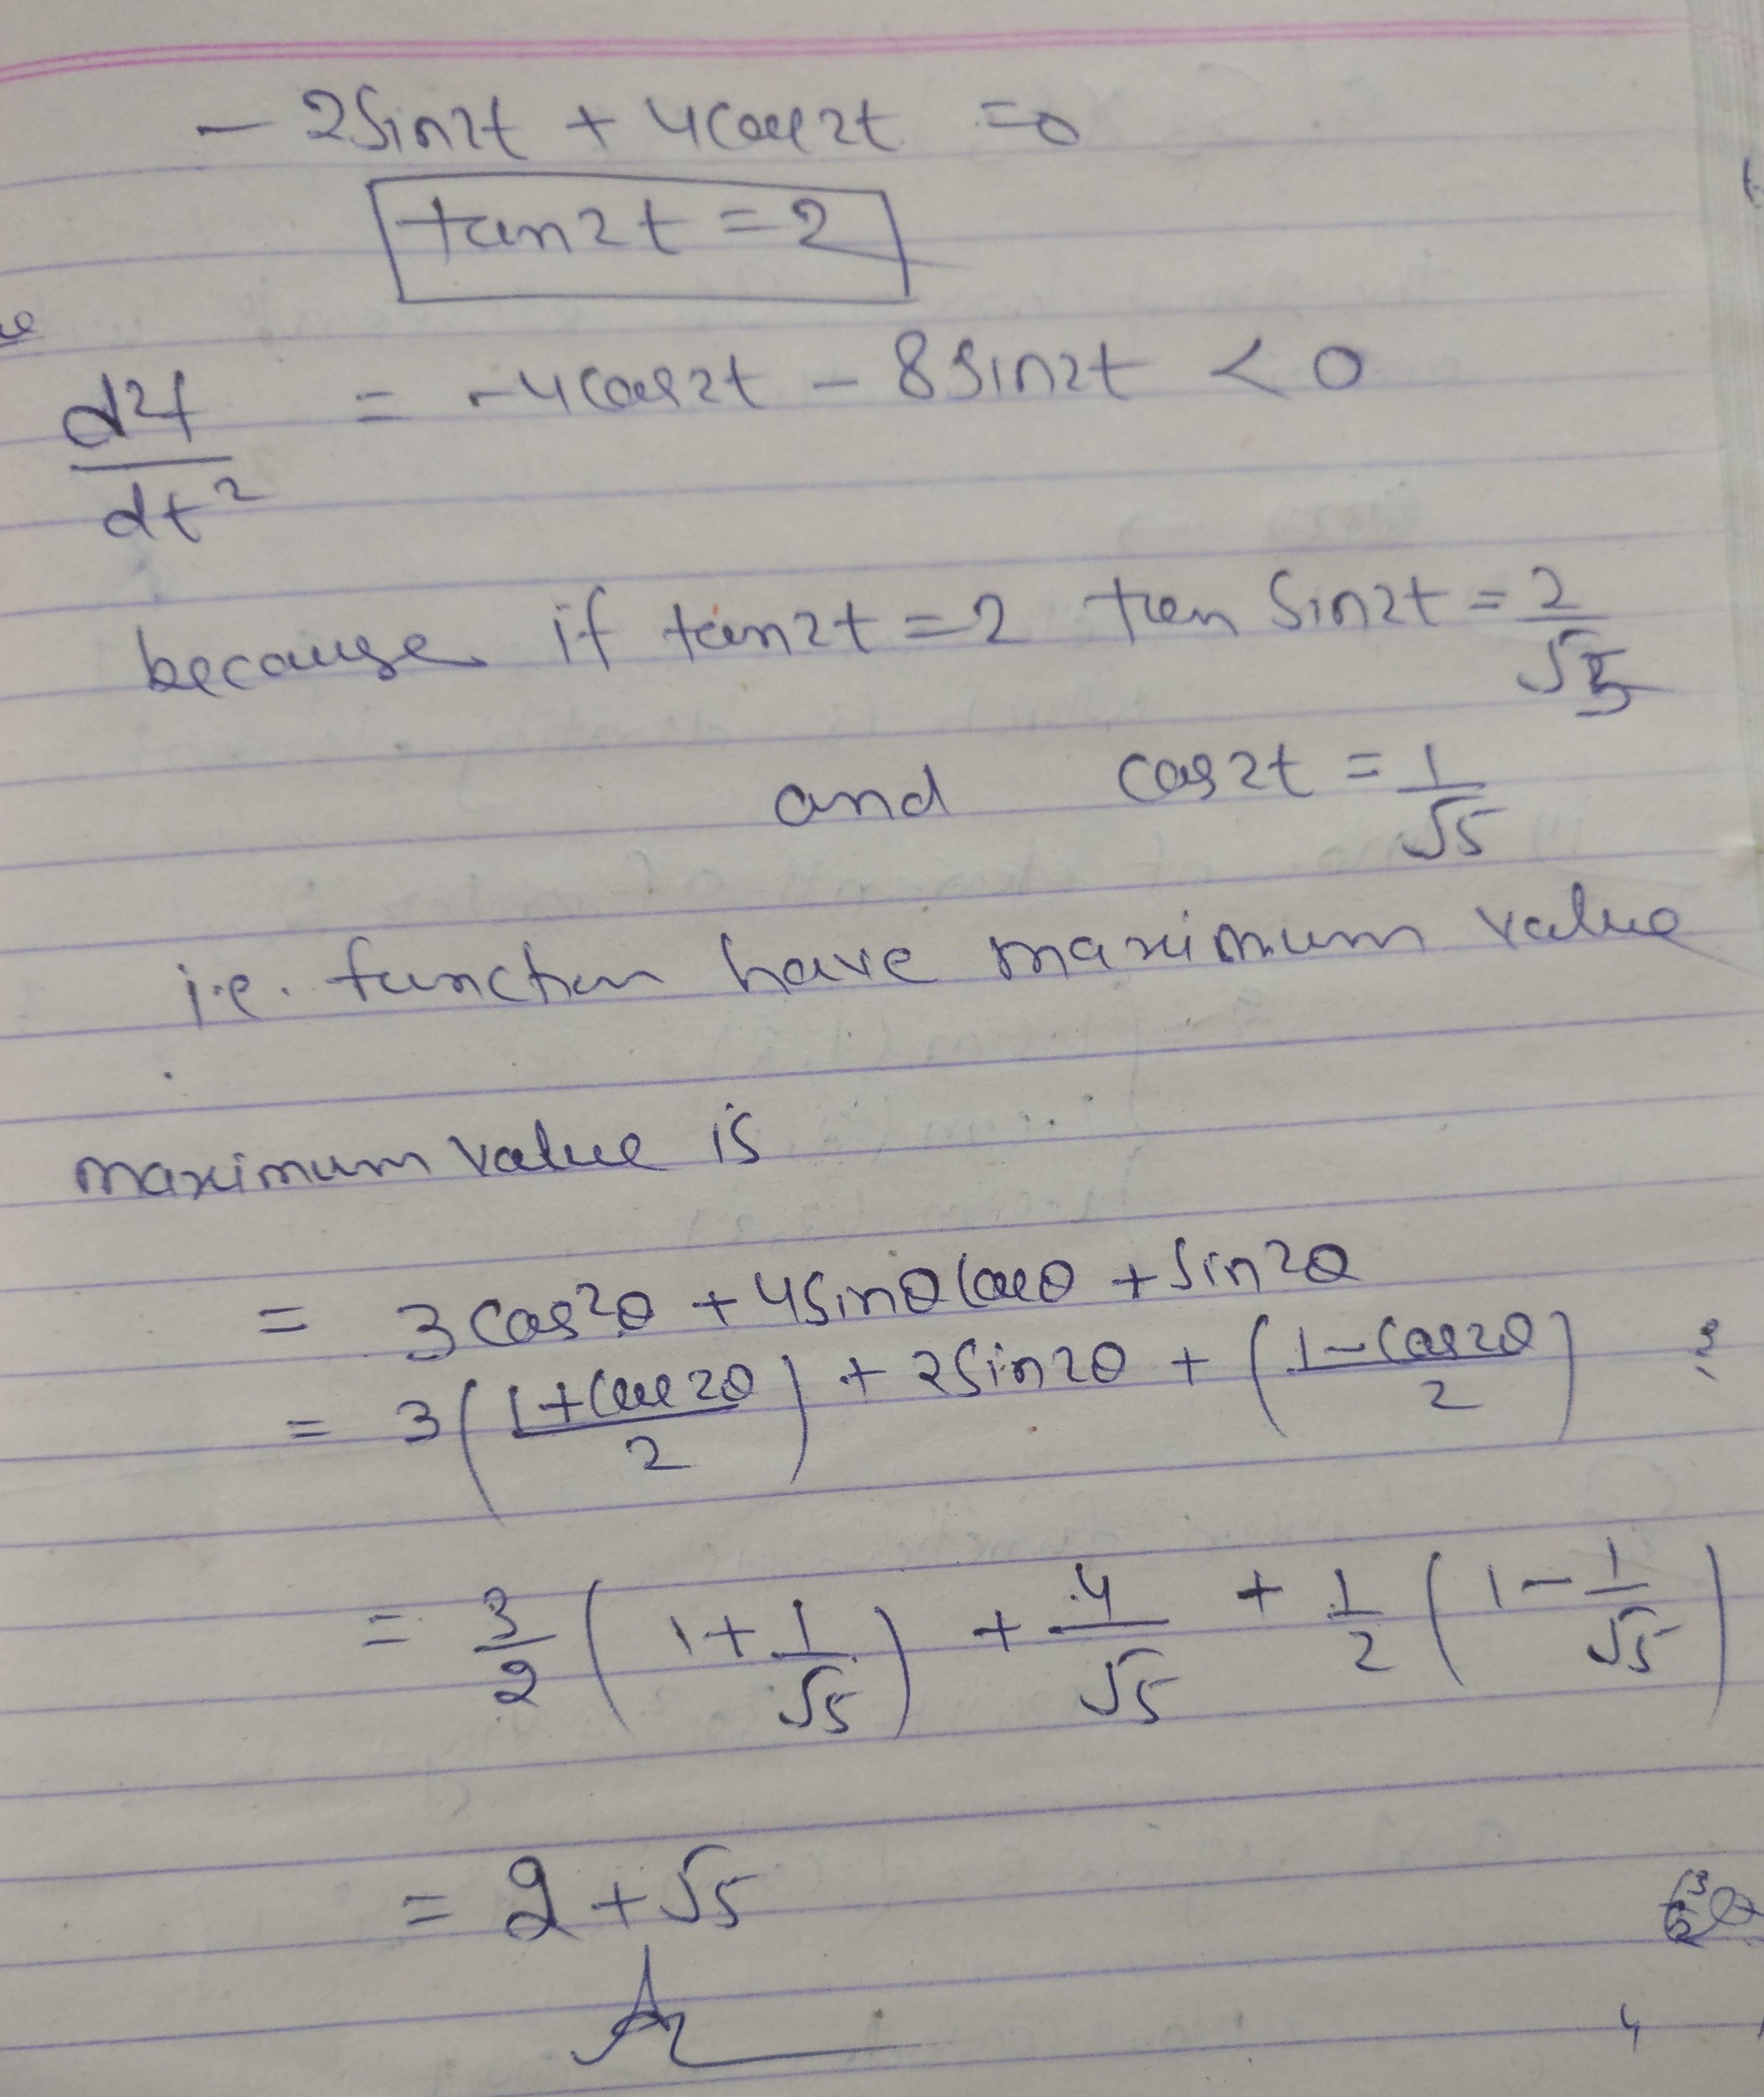 - 2Sin2t + 4Cos2t = 0
tan2t = 2
d²f/dt² = -4Cos2t - 8Sin2t < 0
because if tan2t = 2 then Sin2t = 2/√5
and Cos2t = 1/√5
i.e. function have maximum value
maximum value is
= 3Cos²θ + 4Sinθ Cosθ + Sin²θ
= 3(1+Cos2θ/2) + 2Sin2θ + (1-Cos2θ/2)
= 3/2 (1+1/√5) + 4/√5 + 1/2 (1-1/√5)
= 2 + √5